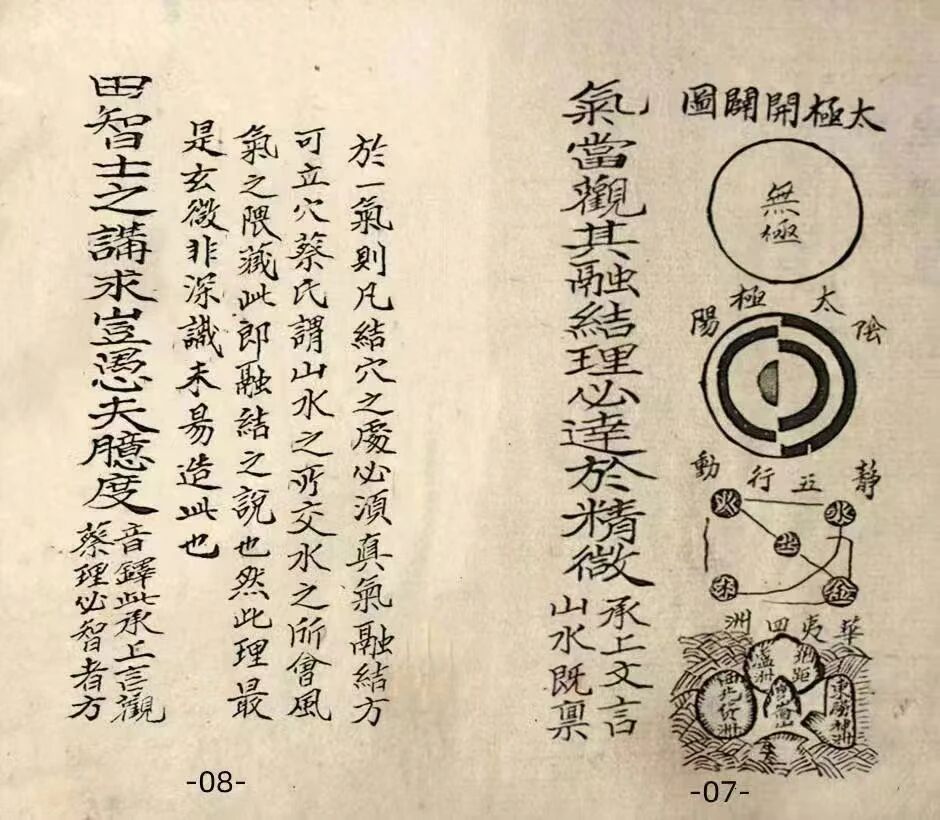 太極開闢圖
無極
陰太極陽
靜五行動
水火
土
金木
華夷四洲
東勝神洲
崑崙山
氣當觀其融結理必達於精微
承上文言
山水既禀
-07-
於一氣則凡結穴之處必須真氣融結方
可立穴蔡氏謂山水之所交水之所會風
氣之隈藏此即融結之說也然此理最
是玄微非深識未易造此也
田智士之講求豈愚夫臆度
音鐸此承上言觀
蔡理必智者方
-08-